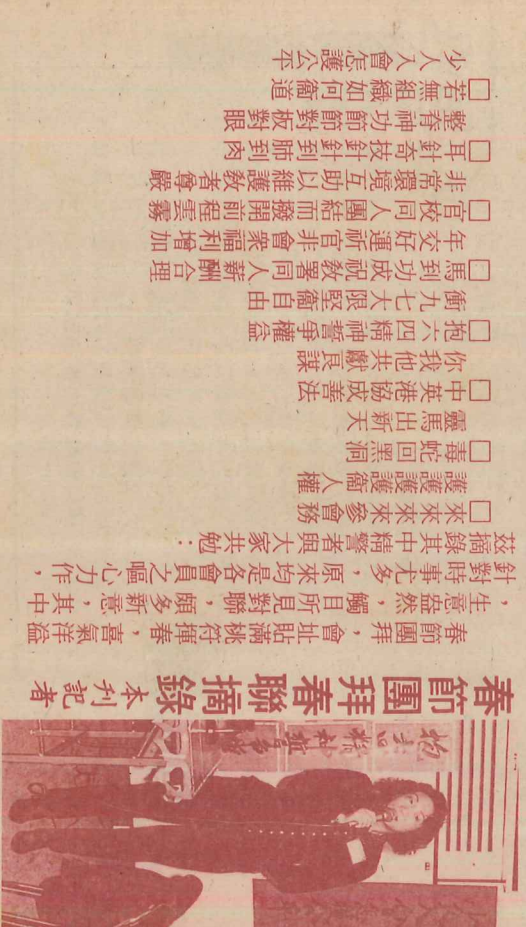 春節團拜春聯摘錄 本刊記者
春節團拜，會址貼滿桃符揮春，喜氣洋溢
，生意盎然，觸目所見對聯，頗多新意，其中
針對時事尤多，原來均是各會員之嘔心力作，
茲摘錄其中精警者與大家共勉：
□來來來來參會務
護護護護衞人權
□毒蛇回黑洞
靈馬出新天
□中英港協成善法
你我他共獻良謀
□抱六四精神誓爭權益
衝九七大限堅衞自由
□馬到功成祝教署同人薪酬合理
年交好運祈官非會衆福利增加
□官校同人團結而撥開前程雲霧
非常環境互助以維護教者尊嚴
□耳針奇枝針針到肺到肉
整脊神功節節對板對眼
□若無組織如何衞道
少人入會怎護公平